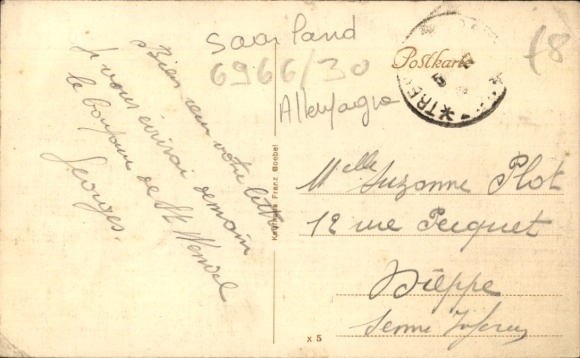 Saarland
6966/30
Allemagne
£8
Postkarte
*TRÉ
Bien reçu votre lettre
Je vous écrirai demain
le bonjour de St Wendel
Georges.
Kaufhaus Franz Goebel
Melle Suzanne Plot
12 rue Pecquet
Dieppe
Seine Inférieure
x 5